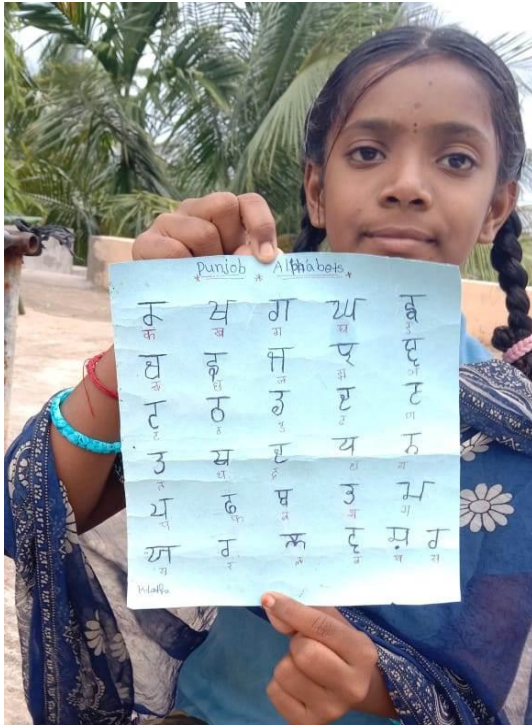 Punjob Alphabets
ਕ ਖ ਗ ਘ ਙ
क ख ग घ ङ
ਚ ਛ ਜ ਝ ਞ
च छ ज झ ञ
ਟ ਠ ਡ ਢ ਣ
ट ठ ड ढ ण
ਤ ਥ ਦ ਧ ਨ
त थ द ध न
ਪ ਫ ਬ ਭ ਮ
प फ ब भ म
ਯ ਰ ਲ ਵ
य र ल व